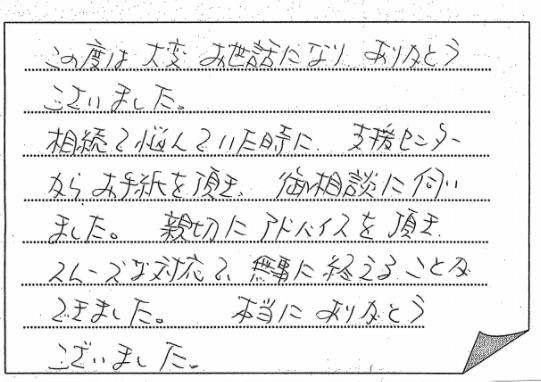 この度は大変お世話になりありがとう
ございました。
相続で悩んでいた時に、支援センター
からお手紙を頂き、御相談に伺い
ました。親切にアドバイスを頂き
スムーズな対応で、無事に終えることが
できました。 本当にありがとう
ございました。